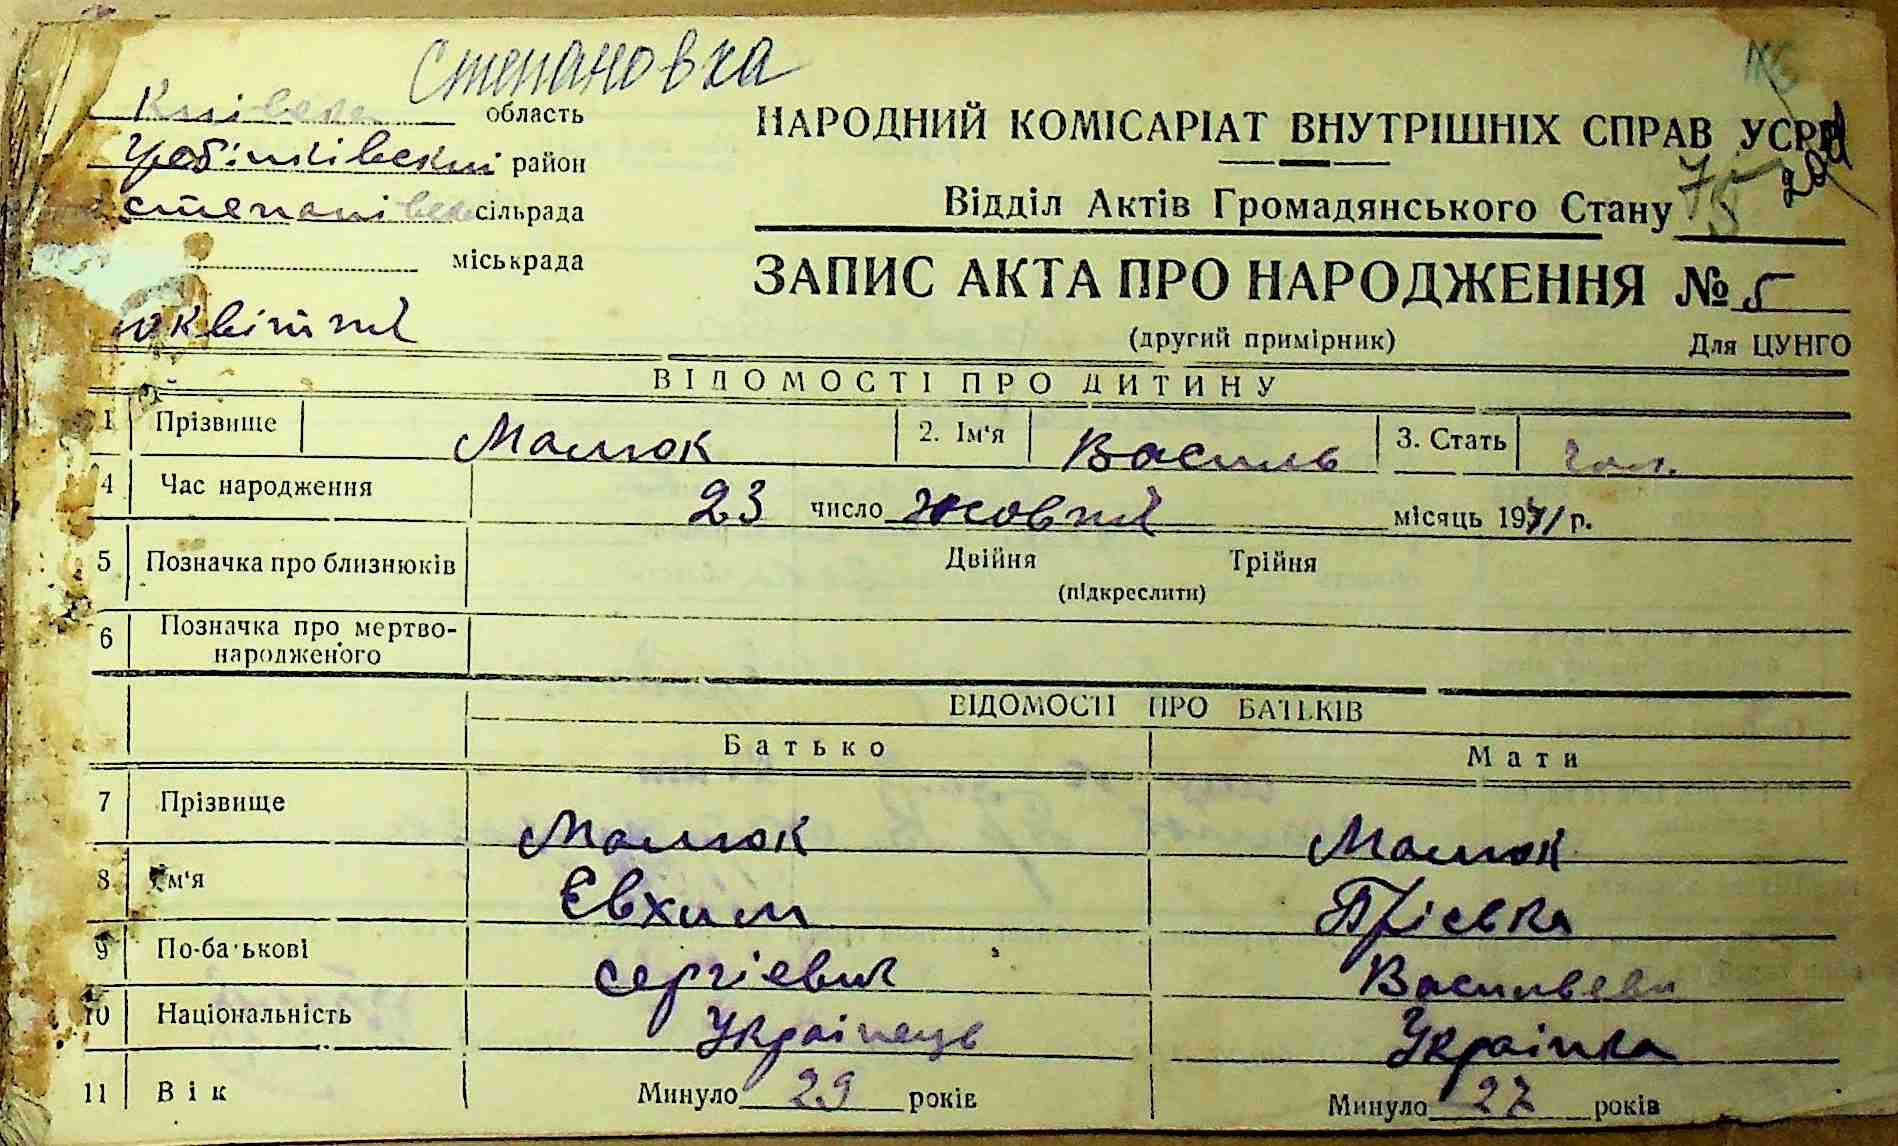 Степановка
Київська область
Гребінківський район
Степанівська сільрада
міськрада
НАРОДНИЙ КОМІСАРІАТ ВНУТРІШНІХ СПРАВ УСРР
Відділ Актів Громадянського Стану
75
ЗАПИС АКТА ПРО НАРОДЖЕННЯ № 5
(другий примірник) Для ЦУНГО
ВІДОМОСТІ ПРО ДИТИНУ
1 Прізвище Малюк 2. Ім'я Василь 3. Стать чол.
4 Час народження 23 число Жовтня місяць 1941 р.
5 Позначка про близнюків Двійня Трійня
(підкреслити)
6 Позначка про мертво-
народженого
ВІДОМОСТІ ПРО БАТЬКІВ
Батько Мати
7 Прізвище Малюк Малюк
8 Ім'я Євхим
9 По-батькові Сергієвич Васильевн
10 Національність Українець Українка
11 Вік Минуло 29 років Минуло 27 років